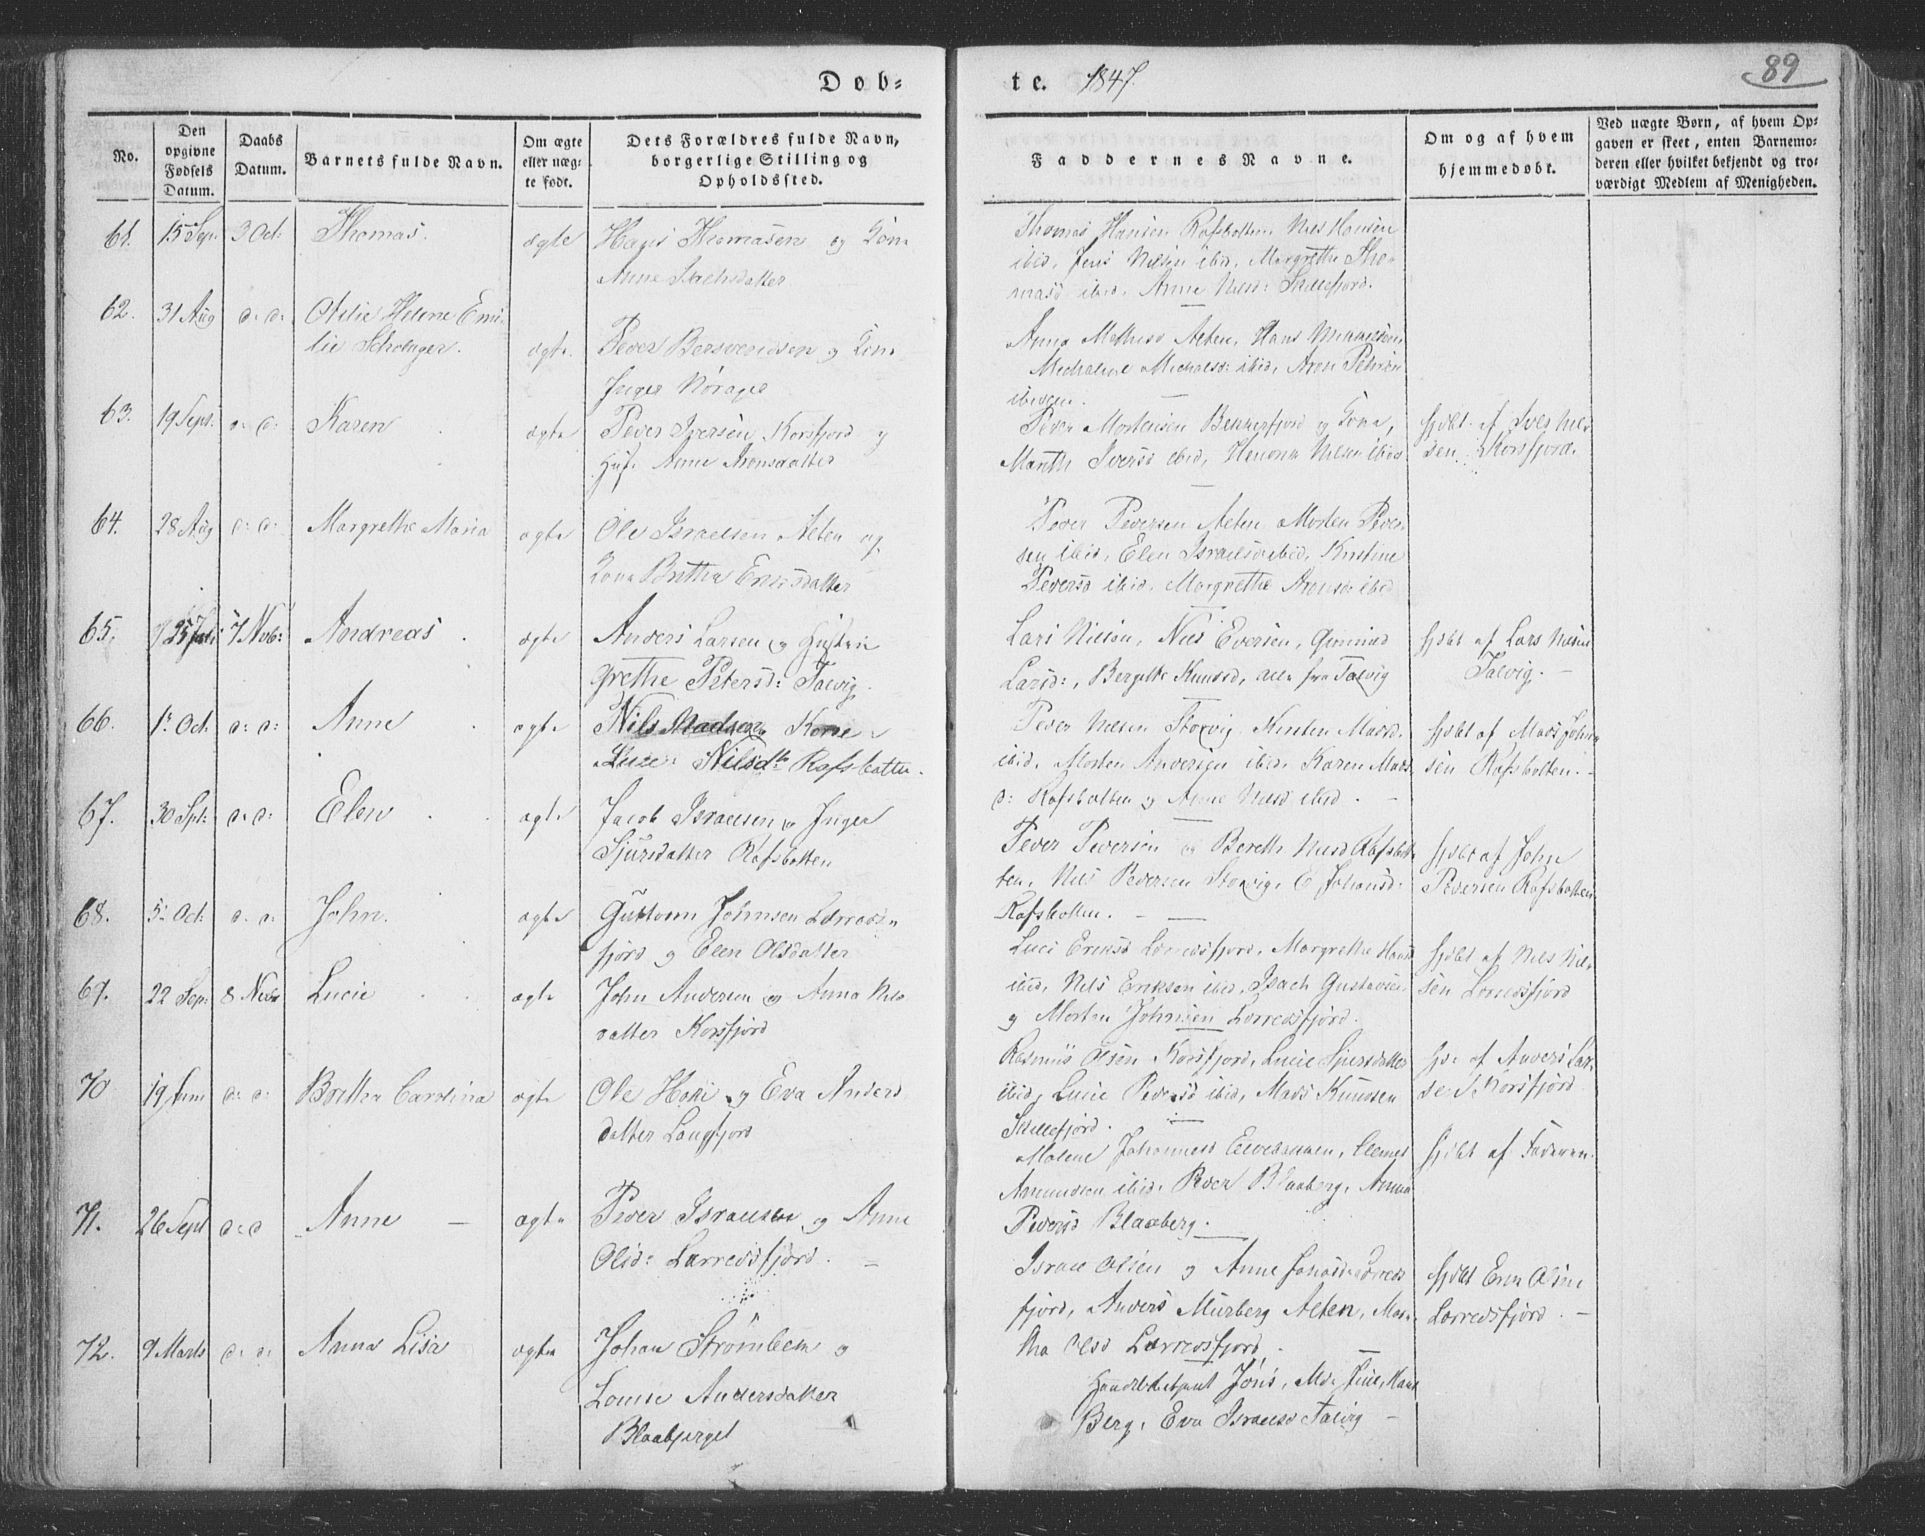 Døb-
te. 1847.
89
No.
Den opgivne Fødsels Datum.
Daabs Datum.
Barnets fulde Navn.
Om ægte eller uægte født.
Dets Forældres fulde Navn, borgerlige Stilling og Opholdssted.
Faddernes Navne.
Om og af hvem hjemmedøbt.
Ved uægte Børn, af hvem Opgaven er skeet, enten Barnemoderen eller hvilket bekjendt og troværdigt Medlem af Menigheden.
61. 15 Sep. 3 Oct: Thomas. ægte
Hans Thomasen og Kone
Anne
Thomas Hansen Rafsbotten, Nils Hansen
ibid, Jens Nilsen ibid, Margrethe Tho-
masd ibid, Anne Nilsd: Skillefjord.
62. 31 Aug d: d: Helene Emi-
lie ægte.
Peder og Kone
Inger
Anna Alten, Hans
Michalsd: ibid, Aron Peders
ibidem.
63. 19 Sept. d: d: Karen ægte
Peder Iversen Korsfjord og
Hust. Anne Aronsdatter
Peder Mortensen og Kone,
Marith Iversd ibid, Nilsen ibid
hjdbt. af Nils
sen, Korsfjord.
64. 28 Aug d: d: Margrethe Maria ægte
Ole Israelsen Alten og
Kone Britha Eriksdatter
Peder Pedersen Alten Morten Peder-
sen ibid, Elen Israelsd ibid, Kirstine
Pedersd ibid, Margrethe Aronsd ibid
65. 7 Nvb: Andreas. ægte
Anders Larsen og
Grethe Petersd: Talvig.
Lars Nilsen, Nils Eversen,
Larsd:, Knudsd, alle fra Talvig
hjdbt af Lars Nilsen
Talvig. —
66. 1 Oct. d: d: Anne ægte
Nils Madsen Kone
Nilsdtr Rafsbotten.
Peder Nilsen Storvig, Kirsten Madsd.
ibid, Morten Andersen ibid. Karen Mads
d: Rafsbotten og Anne Nilsd ibid. —
hjdbt af Mads John
sen Rafsbotten.
67. 30 Spt: d: d: Elen ægte
Jacob Israelsen og Inger
Sjursdatter Rafsbotten
Peder Pedersen og Berethe Nilsd Rafsbot-
ten, Nils Pedersen Storvig, E Johansd:
Rafsbotten. —
hjdbt af John
Pedersen Rafsbotten
68. 5 Oct. d: d: John. ægte
Gustavus Johnsen Lerreds-
fjord og Elen Olsdatter
Luci Eriksd Lerredsfjord, Margrethe Hansd
ibid, Nils Eriksen ibid, Isach Gustavsen
og Morten Johnsen Lerredsfjord.
hjdbt af Nils Nil-
sen Lerredsfjord
69. 22 Sep: 8 Nvbr Lucie ægte
John Andersen og Anna Nils
datter Korsfjord
Rasmus Olsen Korsfjord, Lucie Sjursdatter
ibid, Lucie Pedersd ibid, Mads Knudsen
Skillefjord. —
hj: af Anders Lar-
sen Korsfjord
70 19 Juni d: d: Caroline ægte
Ole og Eva Anders
datter Langfjord
Malene Johannesd Clemet
Amundsen ibid, Peder Blaaberg, Anna
Pedersd Blaaberg.
hjdbt af Faderen.
71. 26 Sept d: d Anne — ægte
Peder Israelsen og Anne
Olsd: Lerredsfjord. —
Israel Olsen og Anne Jonasd Lerreds
fjord, Anders Murberg Alten, Mar-
tha Olsd Lerredsfjord.
hjdbt Olsen
Lerredsfjord. —
72. 9 Marts d: d: Anna Lisa ægte
Johan Strömbem og
Louise Andersdatter
Blaabjerget
Jöns, Hans
Berg, Eva Israelsd Talvig —